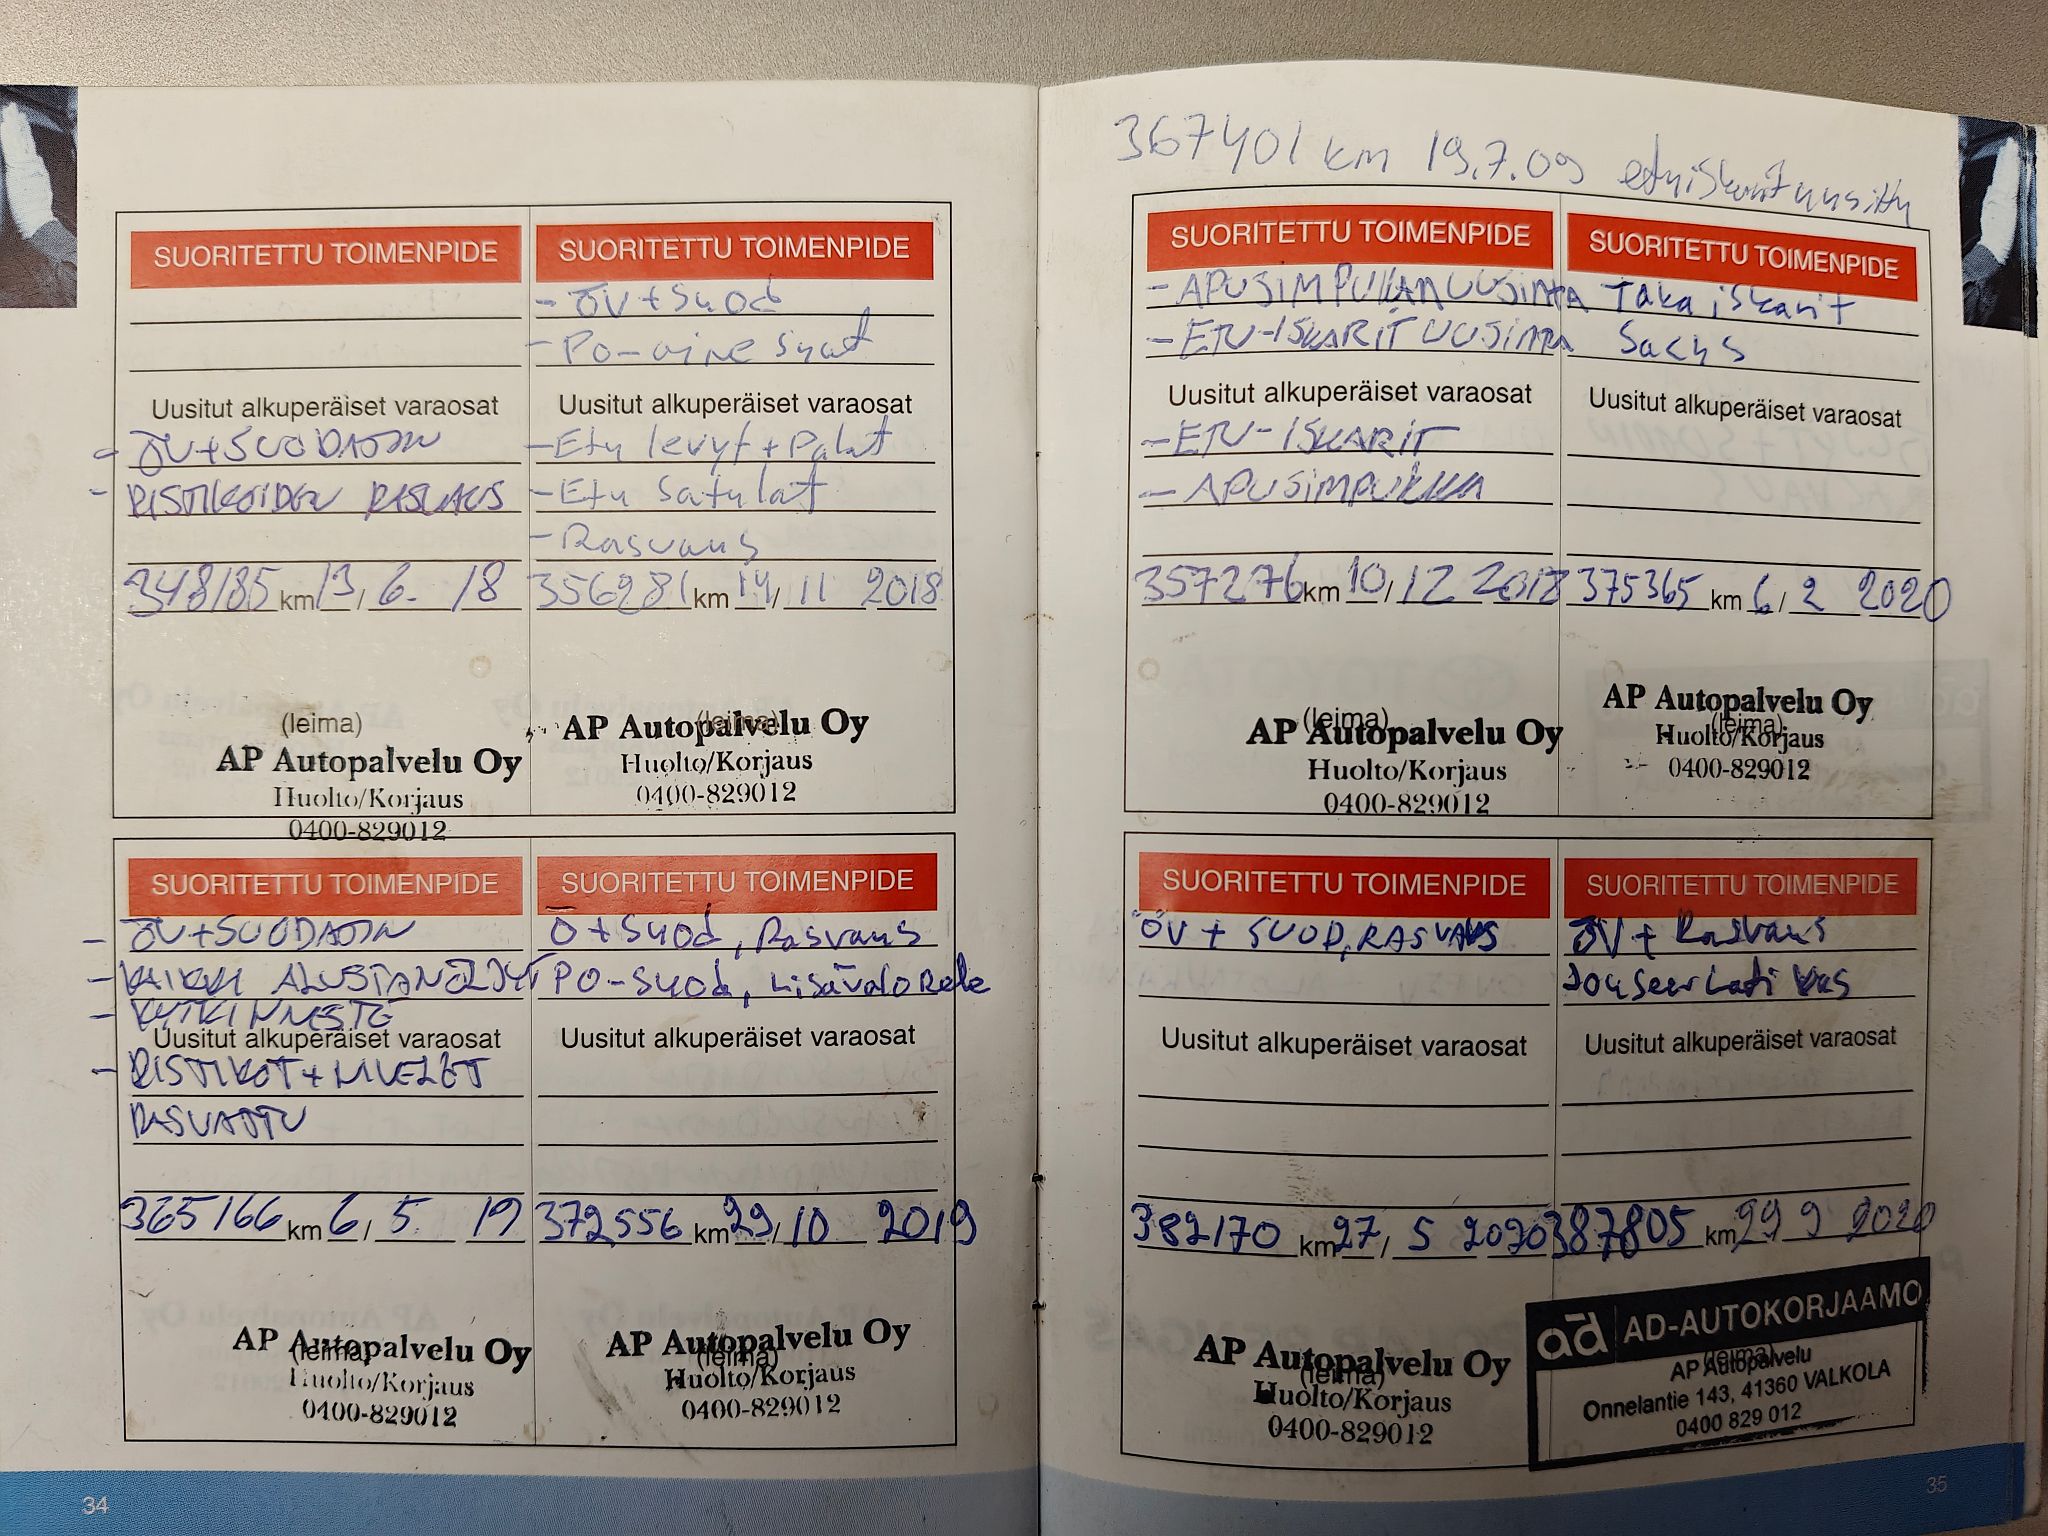 367401 km 19.7.09 etuiskarit uusittu
SUORITETTU TOIMENPIDE
Uusitut alkuperäiset varaosat
- ÖV+SUODATIN
- RISTIKOIDEN RASVAUS
348185 km 13/6. 18
(leima)
AP Autopalvelu Oy
Huolto/Korjaus
0400-829012
SUORITETTU TOIMENPIDE
- ÖV+Suod
- Po-aine suod
Uusitut alkuperäiset varaosat
- Etu levyt+Palat
- Etu Satulat
- Rasvaus
356281 km 14/11 2018
(leima)
AP Autopalvelu Oy
Huolto/Korjaus
0400-829012
SUORITETTU TOIMENPIDE
- ÖV+SUODATIN
- KAIKKI ALUSTAN ÖLJYT
- KYTKINNESTE
Uusitut alkuperäiset varaosat
- RISTIKOT+NIVELET
RASVATTU
365166 km 6/5. 19
(leima)
AP Autopalvelu Oy
Huolto/Korjaus
0400-829012
SUORITETTU TOIMENPIDE
Ö+Suod, Rasvaus
PO-Suod, Lisävalo Rele
Uusitut alkuperäiset varaosat
372556 km 29/10 2019
(leima)
AP Autopalvelu Oy
Huolto/Korjaus
0400-829012
34
SUORITETTU TOIMENPIDE
- APUSIMPUKAN UUSINTA
- ETU-ISKARIT UUSINTA
Uusitut alkuperäiset varaosat
- ETU-ISKARIT
- APUSIMPUKKA
357276 km 10/12 2018
(leima)
AP Autopalvelu Oy
Huolto/Korjaus
0400-829012
SUORITETTU TOIMENPIDE
Taka iskarit
Sachs
Uusitut alkuperäiset varaosat
375365 km 6/2 2020
(leima)
AP Autopalvelu Oy
Huolto/Korjaus
0400-829012
SUORITETTU TOIMENPIDE
ÖV + SUOD, RASVAUS
Uusitut alkuperäiset varaosat
382170 km 27/5 2020
(leima)
AP Autopalvelu Oy
Huolto/Korjaus
0400-829012
SUORITETTU TOIMENPIDE
ÖV + Rasvaus
Uusitut alkuperäiset varaosat
387805 km 29 9 2020
(leima)
ad AD-AUTOKORJAAMO
AP Autopalvelu
Onnelantie 143, 41360 VALKOLA
0400 829 012
35